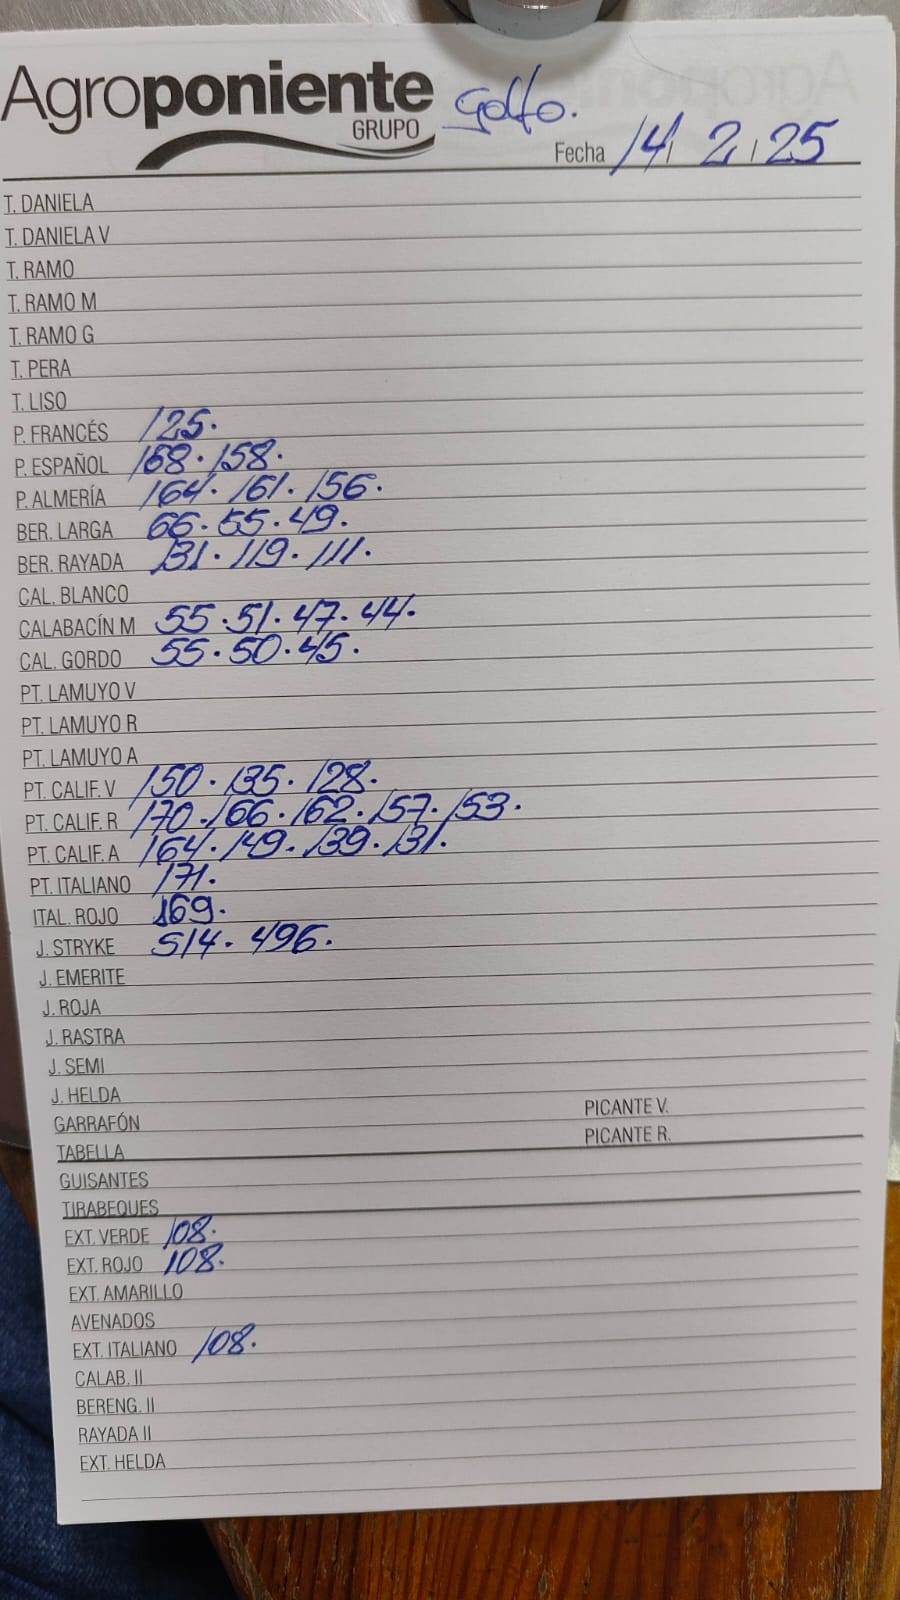 Agroponiente
GRUPO
Golfo.
Fecha 14 / 2 / 25
T. DANIELA
T. DANIELA V
T. RAMO
T. RAMO M
T. RAMO G
T. PERA
T. LISO
P. FRANCÉS 125.
P. ESPAÑOL 168. 158.
P. ALMERÍA 164. 161. 156.
BER. LARGA 66. 55. 49.
BER. RAYADA 131. 119. 111.
CAL. BLANCO
CALABACÍN M 55. 51. 47. 44.
CAL. GORDO 55. 50. 45.
PT. LAMUYO V
PT. LAMUYO R
PT. LAMUYO A
PT. CALIF. V 150. 135. 128.
PT. CALIF. R 170. 166. 162. 157. 153.
PT. CALIF. A 164. 149. 139. 131.
PT. ITALIANO 171.
ITAL. ROJO 169.
J. STRYKE 514. 496.
J. EMERITE
J. ROJA
J. RASTRA
J. SEMI
J. HELDA
GARRAFÓN PICANTE V.
TABELLA PICANTE R.
GUISANTES
TIRABEQUES
EXT. VERDE 108.
EXT. ROJO 108.
EXT. AMARILLO
AVENADOS
EXT. ITALIANO 108.
CALAB. II
BERENG. II
RAYADA II
EXT. HELDA